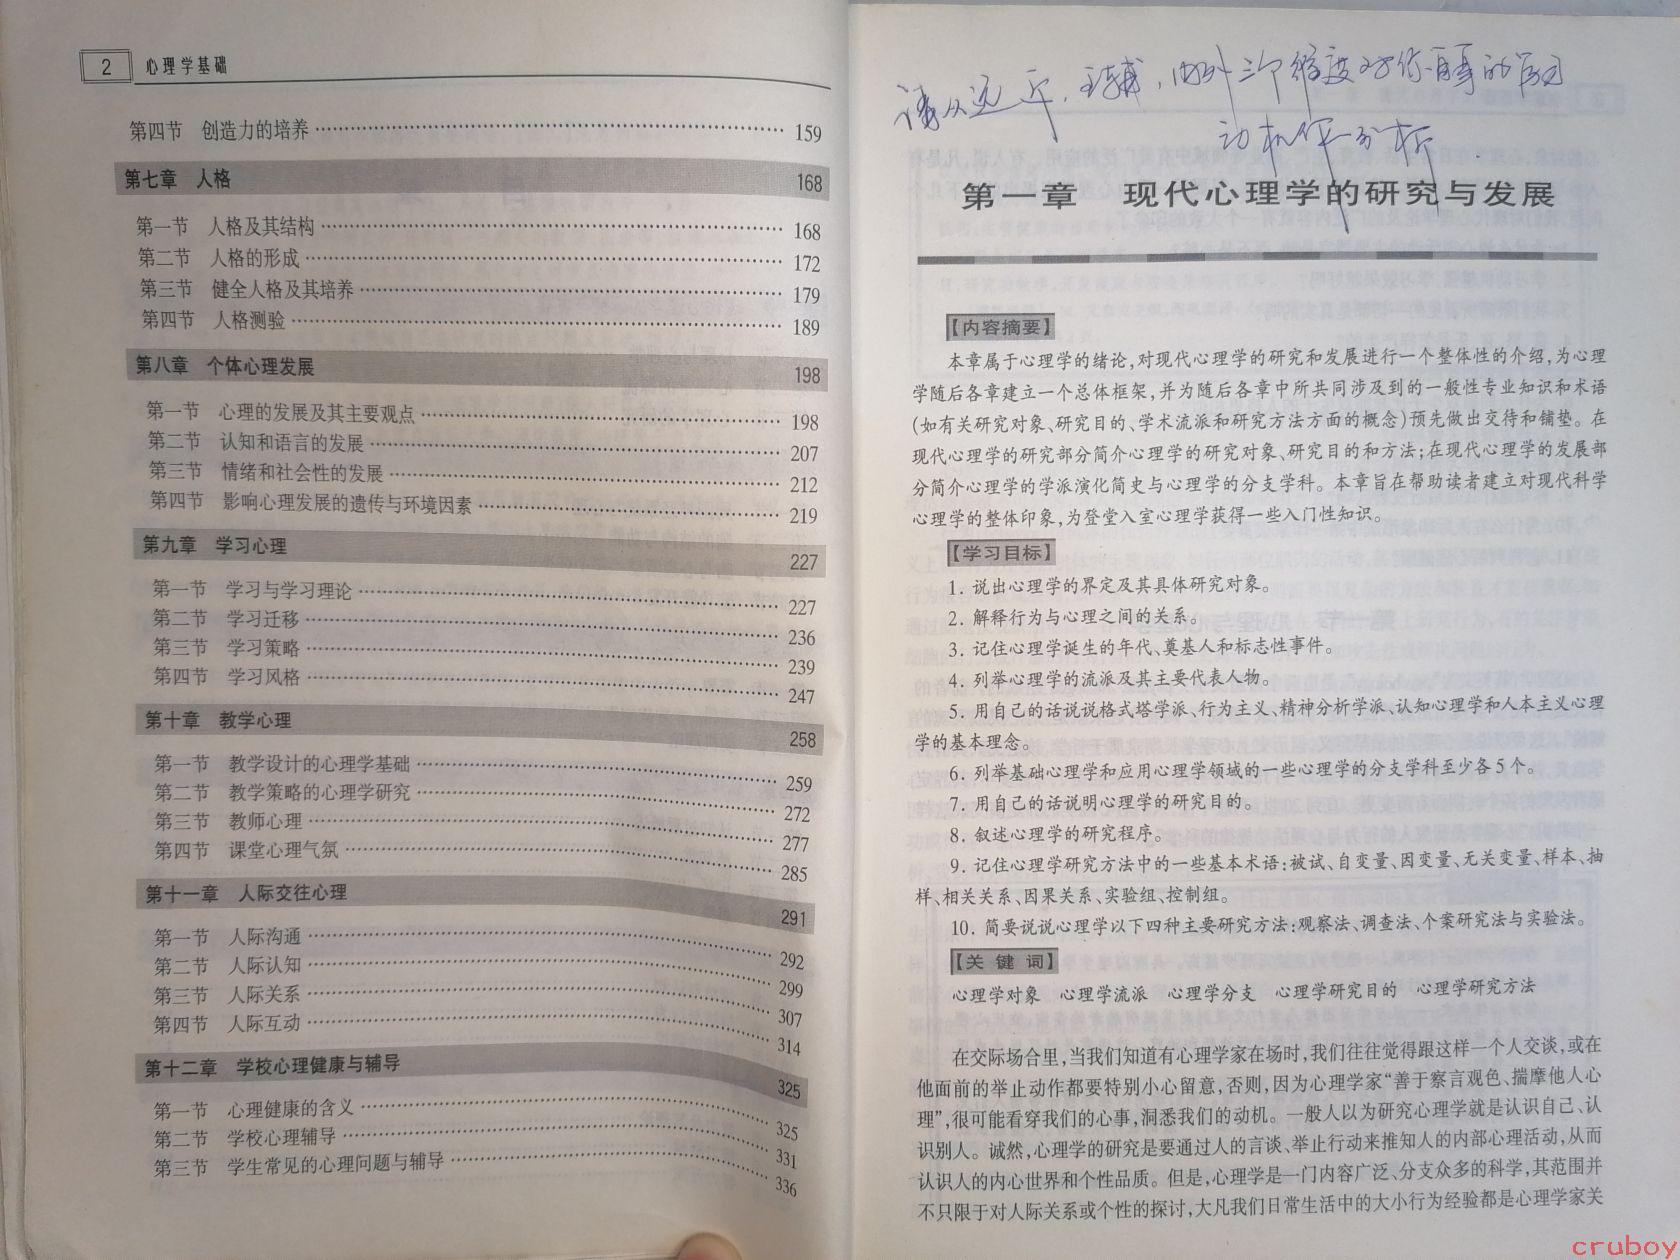 2 心理学基础
第四节 创造力的培养 159
第七章 人格 168
第一节 人格及其结构 168
第二节 人格的形成 172
第三节 健全人格及其培养 179
第四节 人格测验 189
第八章 个体心理发展 198
第一节 心理的发展及其主要观点 198
第二节 认知和语言的发展 207
第三节 情绪和社会性的发展 212
第四节 影响心理发展的遗传与环境因素 219
第九章 学习心理 227
第一节 学习与学习理论 227
第二节 学习迁移 236
第三节 学习策略 239
第四节 学习风格 247
第十章 教学心理 258
第一节 教学设计的心理学基础 259
第二节 教学策略的心理学研究 272
第三节 教师心理 277
第四节 课堂心理气氛 285
第十一章 人际交往心理 291
第一节 人际沟通 292
第二节 人际认知 299
第三节 人际关系 307
第四节 人际互动 314
第十二章 学校心理健康与辅导 325
第一节 心理健康的含义 325
第二节 学校心理辅导 331
第三节 学生常见的心理问题与辅导 336
请从远近、主辅、内外三个维度对你自身的学习
动机作分析.
第一章 现代心理学的研究与发展
【内容摘要】
本章属于心理学的绪论,对现代心理学的研究和发展进行一个整体性的介绍,为心理
学随后各章建立一个总体框架,并为随后各章中所共同涉及到的一般性专业知识和术语
(如有关研究对象、研究目的、学术流派和研究方法方面的概念)预先做出交待和铺垫。在
现代心理学的研究部分简介心理学的研究对象、研究目的和方法;在现代心理学的发展部
分简介心理学的学派演化简史与心理学的分支学科。本章旨在帮助读者建立对现代科学
心理学的整体印象,为登堂入室心理学获得一些入门性知识。
【学习目标】
1. 说出心理学的界定及其具体研究对象。
2. 解释行为与心理之间的关系。
3. 记住心理学诞生的年代、奠基人和标志性事件。
4. 列举心理学的流派及其主要代表人物。
5. 用自己的话说说格式塔学派、行为主义、精神分析学派、认知心理学和人本主义心理
学的基本理念。
6. 列举基础心理学和应用心理学领域的一些心理学的分支学科至少各5个。
7. 用自己的话说明心理学的研究目的。
8. 叙述心理学的研究程序。
9. 记住心理学研究方法中的一些基本术语:被试、自变量、因变量、无关变量、样本、抽
样、相关关系、因果关系、实验组、控制组。
10. 简要说说心理学以下四种主要研究方法:观察法、调查法、个案研究法与实验法。
【关 键 词】
心理学对象 心理学流派 心理学分支 心理学研究目的 心理学研究方法
在交际场合里,当我们知道有心理学家在场时,我们往往觉得跟这样一个人交谈,或在
他面前的举止动作都要特别小心留意,否则,因为心理学家“善于察言观色、揣摩他人心
理”,很可能看穿我们的心事,洞悉我们的动机。一般人以为研究心理学就是认识自己、认
识别人。诚然,心理学的研究是要通过人的言谈、举止行动来推知人的内部心理活动,从而
认识人的内心世界和个性品质。但是,心理学是一门内容广泛、分支众多的科学,其范围并
不只限于对人际关系或个性的探讨,大凡我们日常生活中的大小行为经验都是心理学家关
cruboy